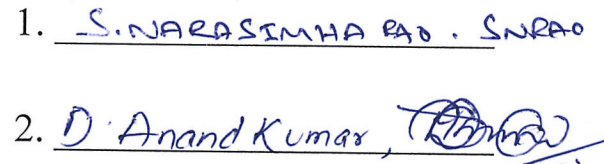 1. S. NARASIMHA RAO. SNRAO
2. D. Anand Kumar,